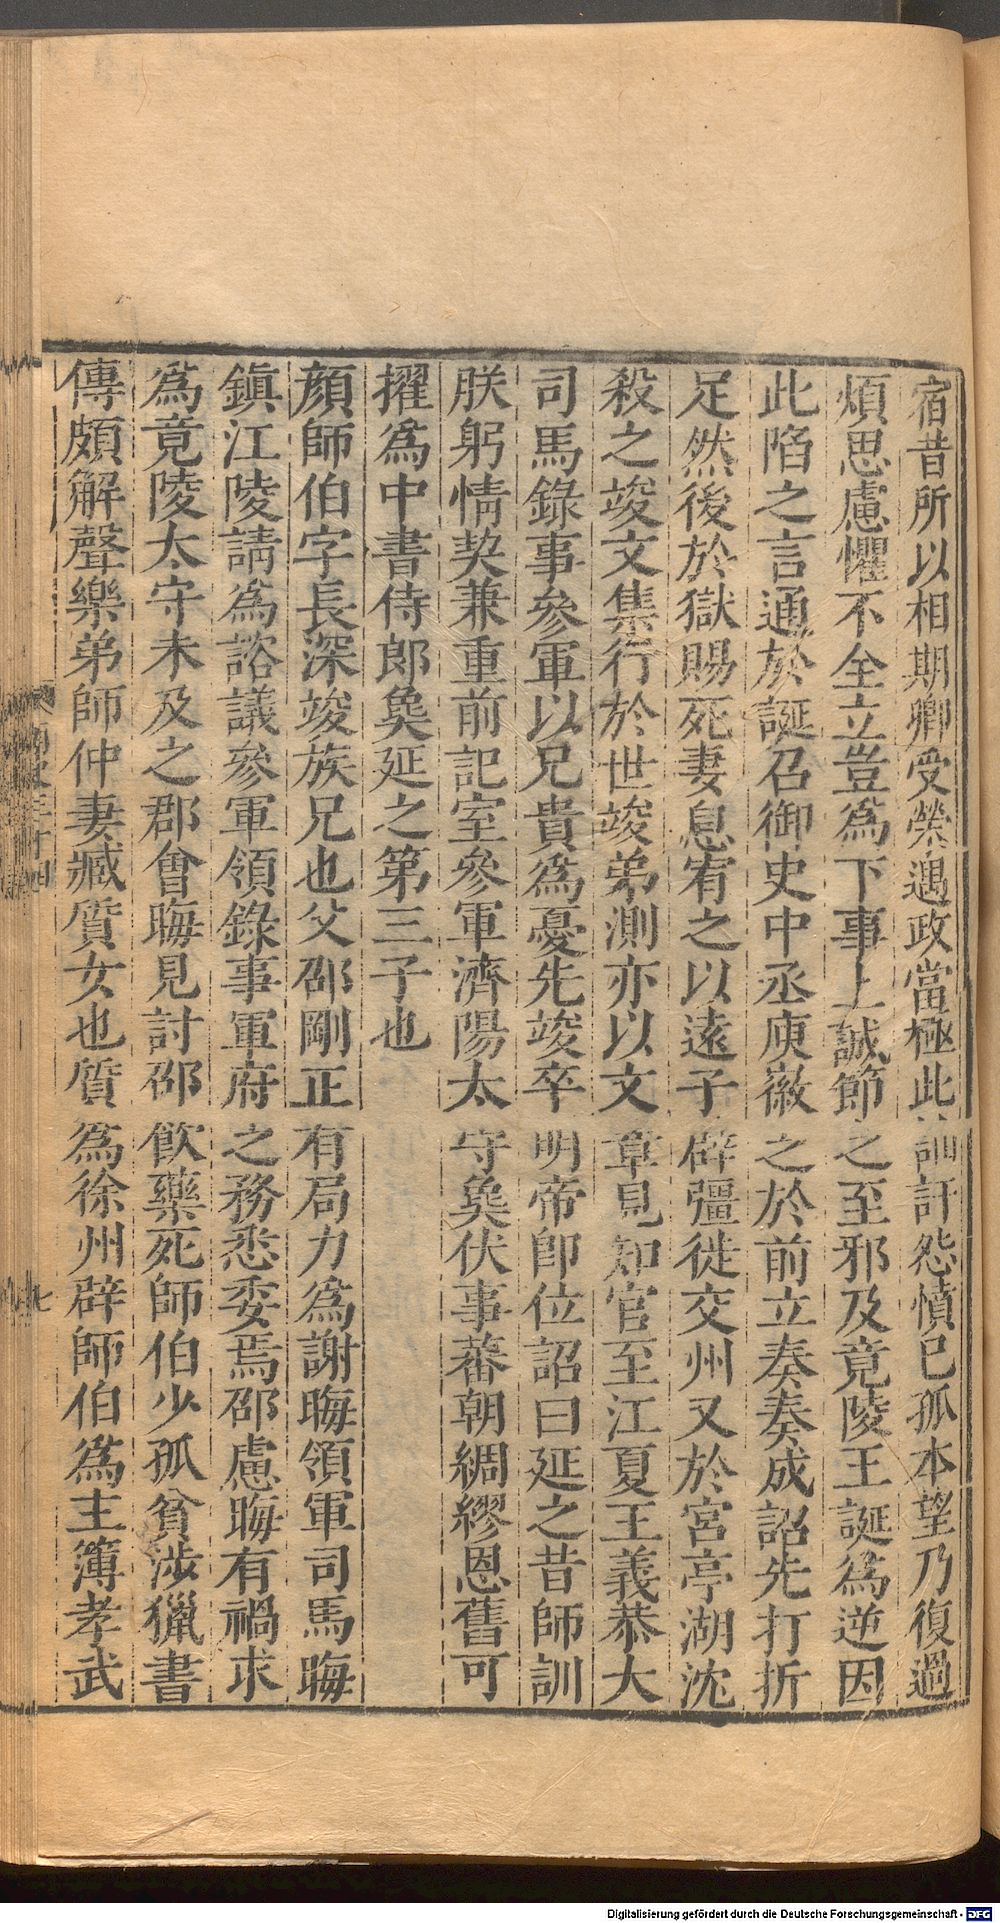 宿昔所以相期卿受榮遇政當極此訕訐怨憤已孤本望乃復過
煩思慮懼不全立豈爲下事上誠節之至邪及竟陵王誕爲逆因
此陷之言通於誕召御史中丞庾徽之於前立奏奏成詔先打折
足然後於獄賜死妻息宥之以遠子辟彊徙交州又於宮亭湖沈
殺之竣文集行於世竣弟測亦以文章見知官至江夏王義恭大
司馬錄事參軍以兄貴爲憂先竣卒明帝卽位詔曰延之昔師訓
朕躬情契兼重前記室參軍濟陽太守㚟伏事蕃朝綢繆恩舊可
擢爲中書侍郎㚟延之第三子也
顏師伯字長深竣族兄也父邵剛正有局力爲謝晦領軍司馬晦
鎭江陵請爲諮議參軍領錄事軍府之務悉委焉邵慮晦有禍求
爲竟陵太守未及之郡會晦見討邵飮藥死師伯少孤貧涉獵書
傳頗解聲樂弟師仲妻臧質女也質爲徐州辟師伯爲主簿孝武
七
Digitalisierung gefördert durch die Deutsche Forschungsgemeinschaft - DFG